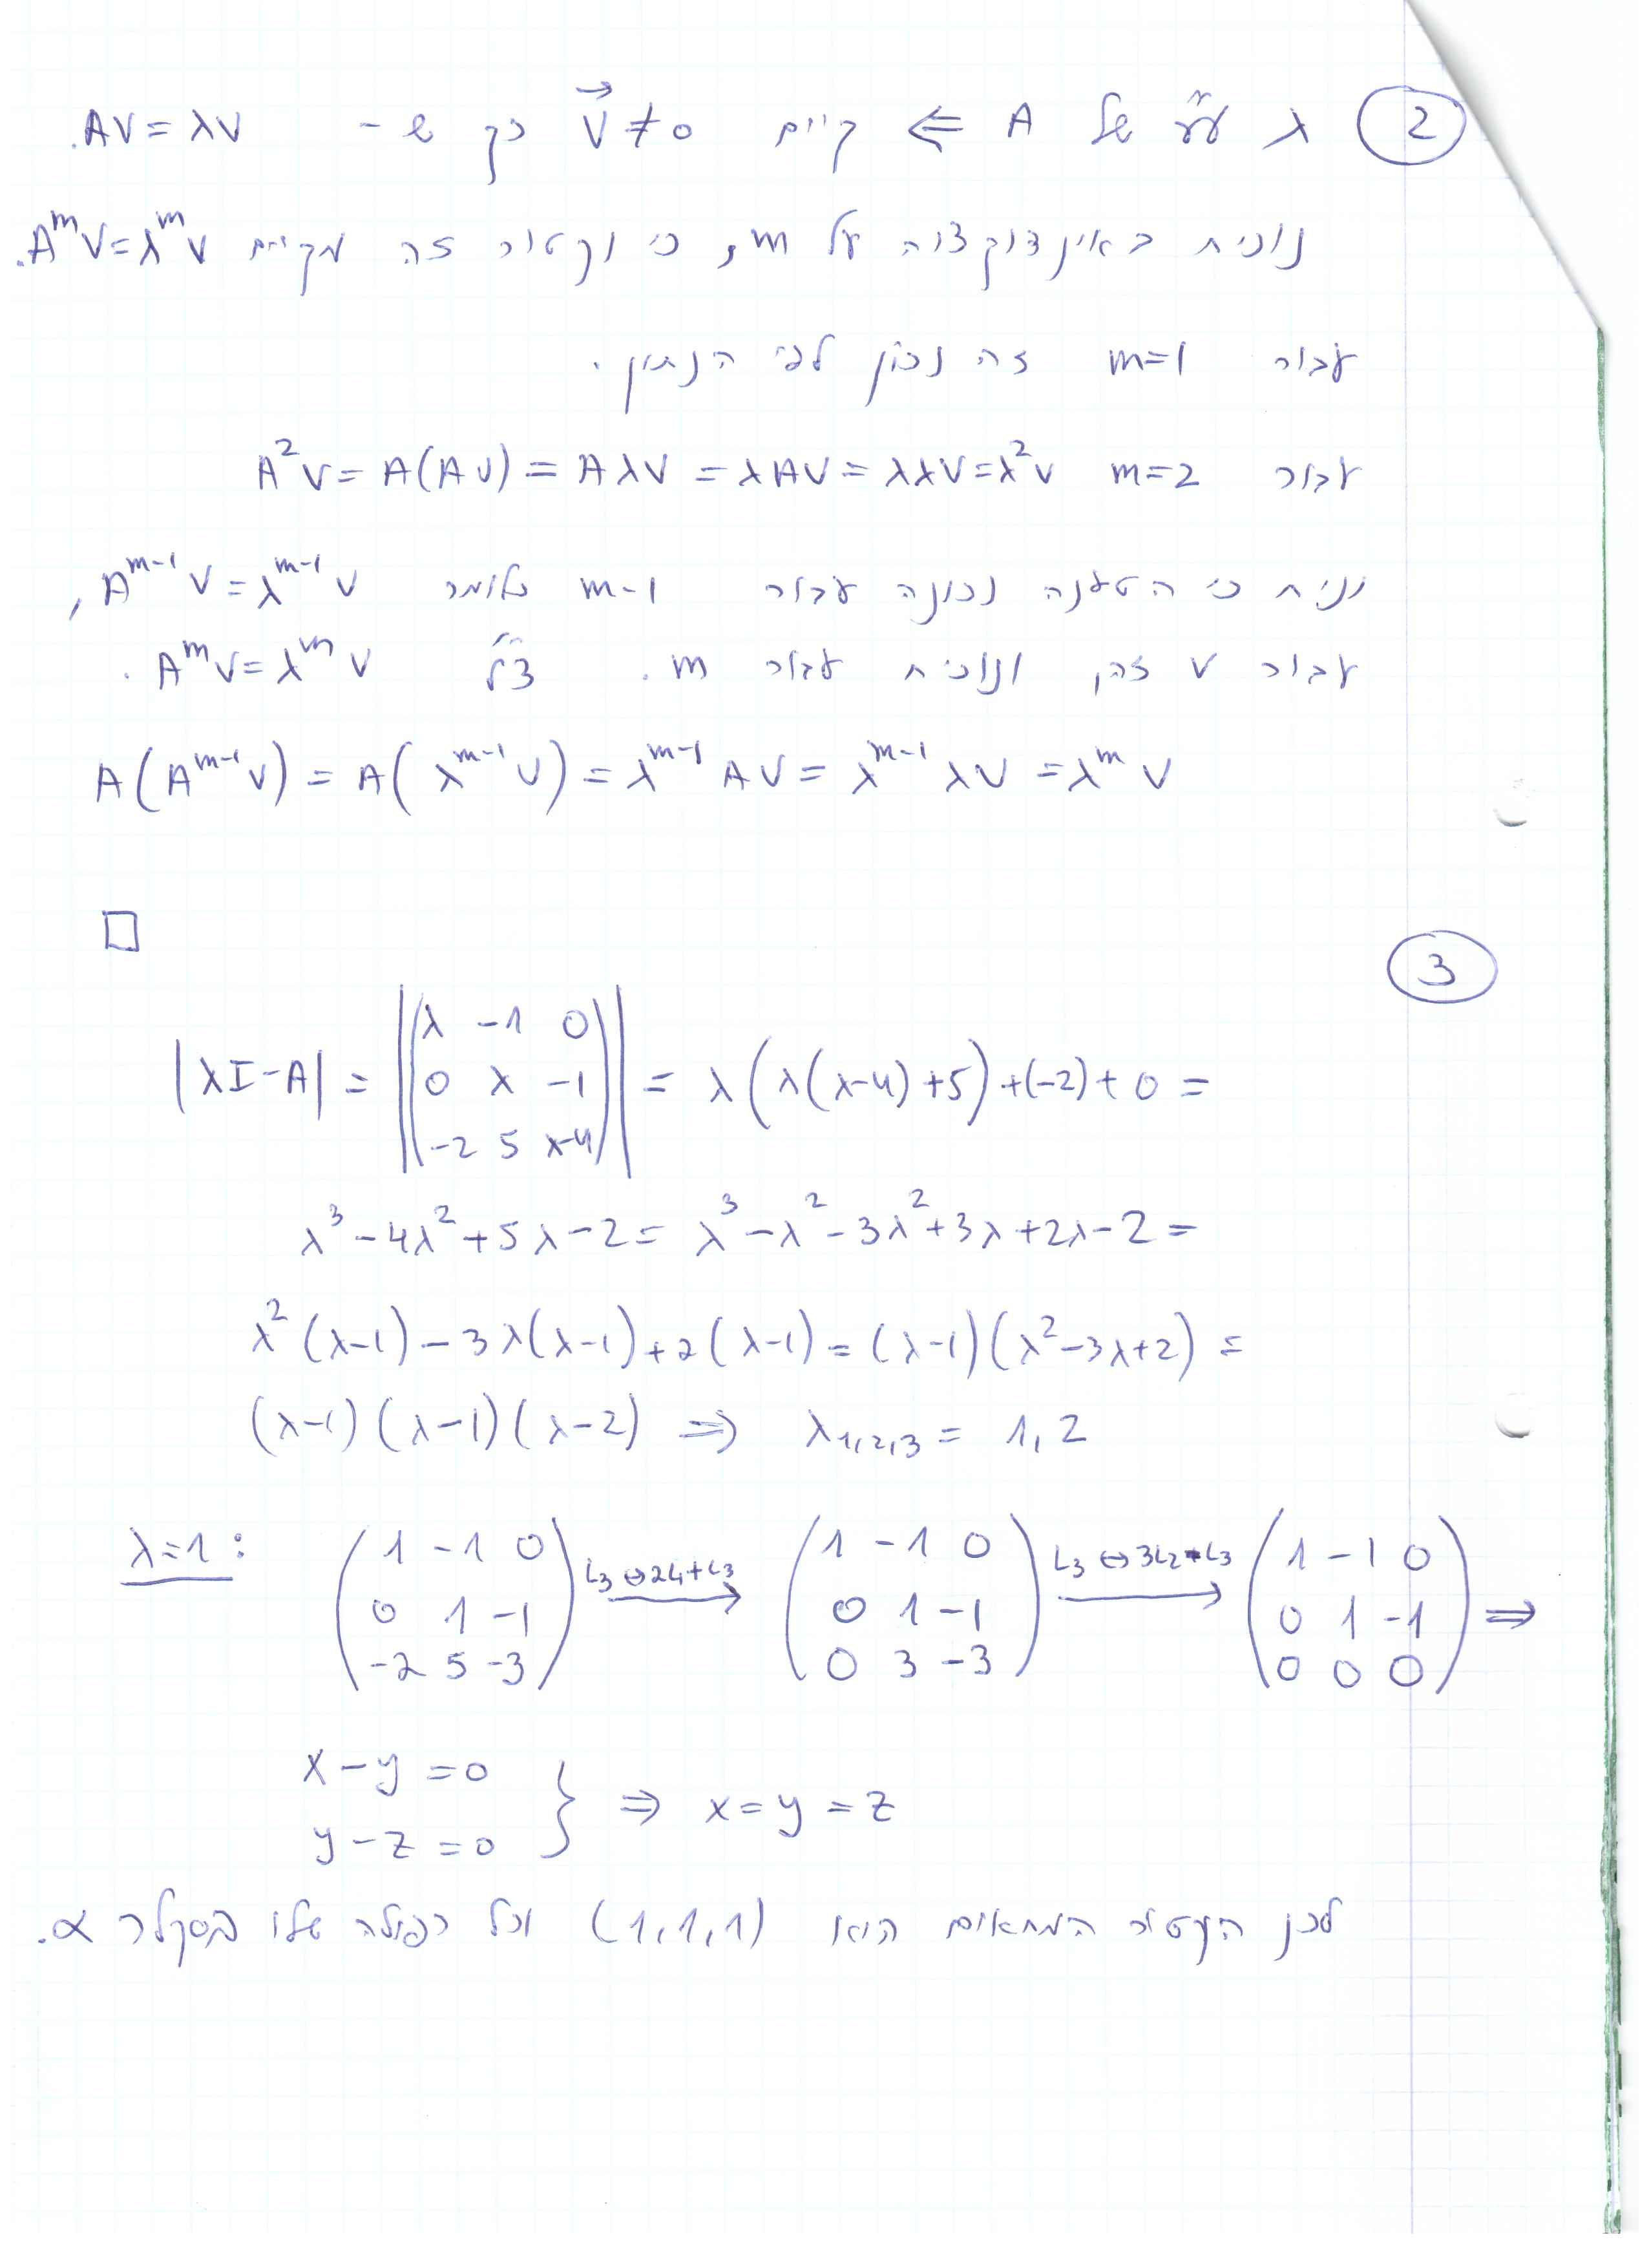 ② λ ע"ע של A ⇐ קיים v⃗≠0 כך ש- AV=λV.
נוכיח באינדוקציה על m, כי וקטור זה מקיים A^m V=λ^m V.
עבור m=1 זה נכון לפי הנתון.
עבור m=2 A²V=A(AV)=AλV=λAV=λλV=λ²V
נניח כי הטענה נכונה עבור m-1 כלומר A^{m-1}V=λ^{m-1}V,
עבור V זה, ונוכיח עבור m. צ"ל A^m V=λ^m V.
A(A^{m-1}V)=A(λ^{m-1}V)=λ^{m-1}AV=λ^{m-1}λV=λ^m V
□
③
|λI-A| = |(λ -1 0
0 λ -1
-2 5 λ-4)| = λ(λ(λ-4)+5)+(-2)+0=
λ³-4λ²+5λ-2=λ³-λ²-3λ²+3λ+2λ-2=
λ²(λ-1)-3λ(λ-1)+2(λ-1)=(λ-1)(λ²-3λ+2)=
(λ-1)(λ-1)(λ-2) ⇒ λ₁,₂,₃ = 1,2
λ=1: (1 -1 0
0 1 -1
-2 5 -3) L₃↔2L₁+L₃ → (1 -1 0
0 1 -1
0 3 -3) L₃↔3L₂-L₃ → (1 -1 0
0 1 -1
0 0 0) ⇒
x-y=0
y-z=0 } ⇒ x=y=z
לכן הוקטור המתאים הוא (1,1,1) וכל כפולה שלו בסקלר α.